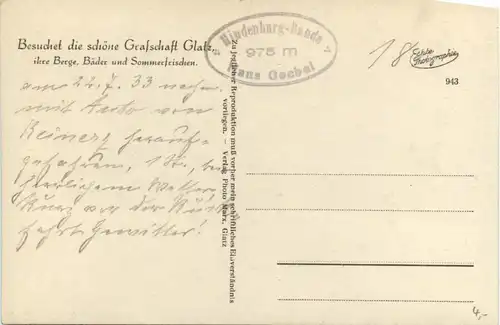 Besuchet die schöne Grafschaft Glatz,
ihre Berge, Bäder und Sommerfrischen.
am 22.7.33 nachm.
mit Auto von
Reinerz herauf-
gefahren, 1 St., bei
herrlichem Wetter
Kurz vor der Rück-
fahrt Gewitter!
Zu jeglicher Reproduktion muß vorher mein schriftliches Einverständnis
vorliegen. — Verlag Photo Marx, Glatz
Hindenburg-Baude
975 m
Hans Goebel
18
Echte
Photographie
943
4,-